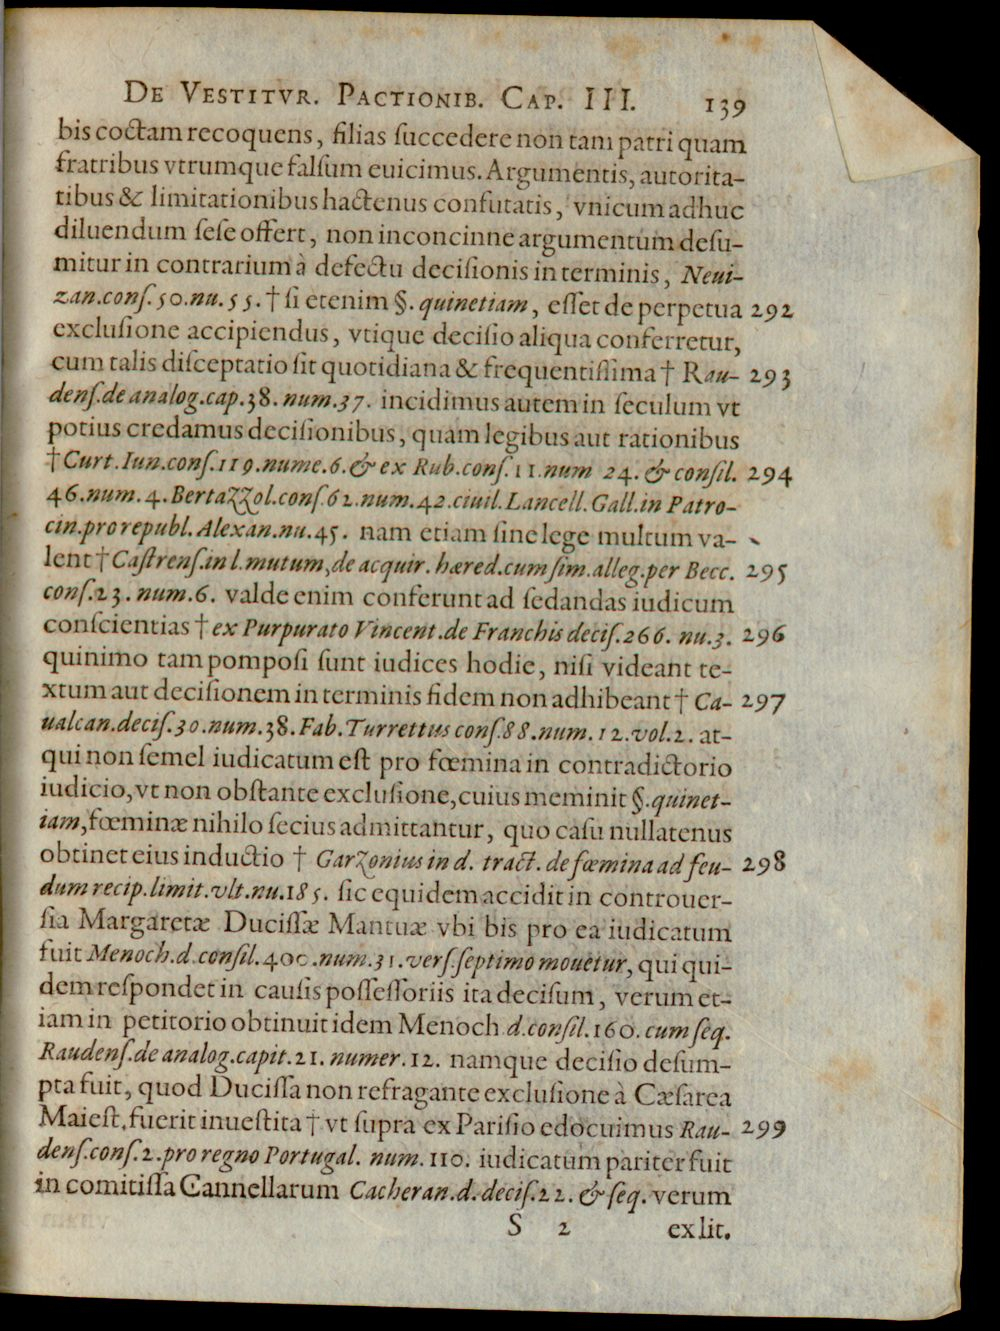 DE VESTITVR. PACTIONIB. CAP. III. 139
bis coctam recoquens, filias ſuccedere non tam patri quam
fratribus vtrumque falſum euicimus. Argumentis, autorita-
tibus & limitationibus hactenus confutatis, vnicum adhuc
diluendum ſeſe offert, non inconcinne argumentum deſu-
mitur in contrarium à defectu deciſionis in terminis, Neui-
zan.conſ.50.nu.55. † ſi etenim §. quinetiam, eſſet de perpetua 292
excluſione accipiendus, vtique deciſio aliqua conferretur,
cum talis diſceptatio ſit quotidiana & frequentiſſima † Rau- 293
denſ.de analog.cap.38.num.37. incidimus autem in ſeculum vt
potius credamus deciſionibus, quam legibus aut rationibus
† Curt.Iun.conſ.119.nume.6.& ex Rub.conſ.11.num 24.& conſil. 294
46.num.4.Bertazzol.conſ.62.num.42.ciuil.Lancell.Gall.in Patro-
cin.pro republ.Alexan.nu.45. nam etiam ſine lege multum va-
lent † Caſtrenſ.in l.mutum,de acquir.hæred.cum ſim.alleg.per Becc. 295
conſ.23.num.6. valde enim conferunt ad ſedandas iudicum
conſcientias † ex Purpurato Vincent.de Franchis deciſ.266. nu.3. 296
quinimo tam pompoſi ſunt iudices hodie, niſi videant te-
xtum aut deciſionem in terminis fidem non adhibeant † Ca- 297
ualcan.deciſ.30.num.38.Fab.Turrettus conſ.88.num.12.vol.2. at-
qui non ſemel iudicatum eſt pro fœmina in contradictorio
iudicio,vt non obſtante excluſione,cuius meminit §.quinet-
iam,fœminæ nihilo ſecius admittantur, quo caſu nullatenus
obtinet eius inductio † Garzonius in d. tract. de fœmina ad feu- 298
dum recip.limit.vlt.nu.185. ſic equidem accidit in controuer-
ſia Margaretæ Duciſſæ Mantuæ vbi bis pro ea iudicatum
fuit Menoch.d.conſil.400.num.31.verſ.ſeptimo mouetur, qui qui-
dem reſpondet in cauſis poſſeſſoriis ita deciſum, verum et-
iam in petitorio obtinuit idem Menoch d.conſil.160.cum ſeq.
Raudenſ.de analog.capit.21.numer.12. namque deciſio deſum-
pta fuit, quod Duciſſa non refragante excluſione à Cæſarea
Maieſt.fuerit inueſtita † vt ſupra ex Pariſio edocuimus Rau- 299
denſ.conſ.2.pro regno Portugal. num.110. iudicatum pariter fuit
in comitiſſa Cannellarum Cacheran.d.deciſ.22.& ſeq. verum
S 2 ex lit.